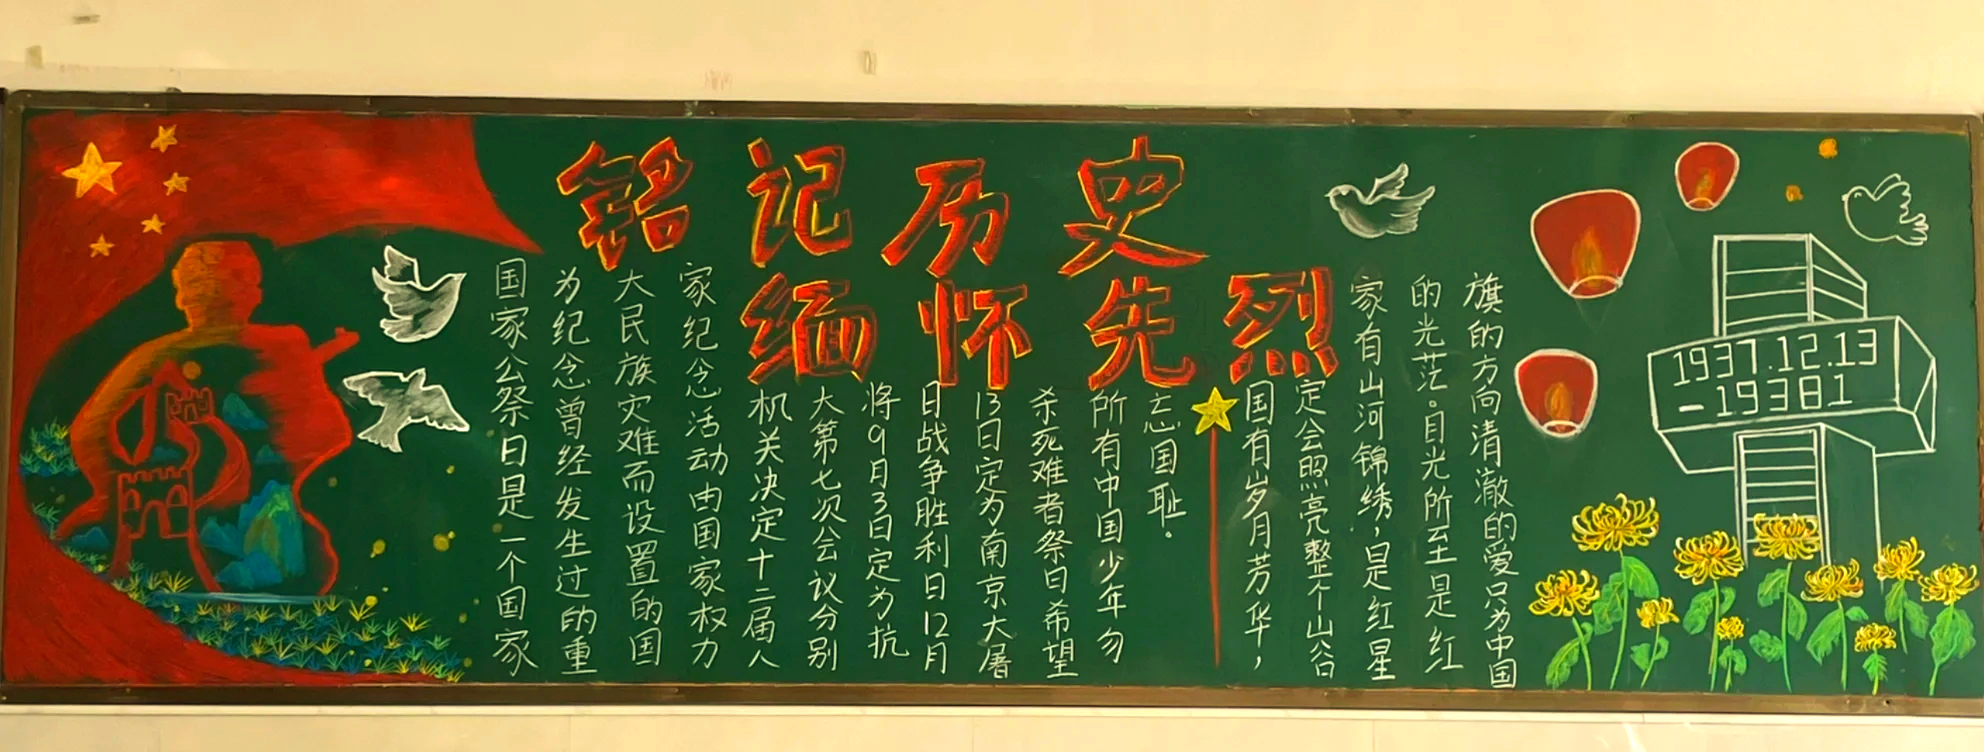 铭记历史
缅怀先烈
国家公祭日是一个国家
为纪念曾经发生过的重
大民族灾难而设置的国
家纪念活动由国家权力
机关决定十二届人
大第七次会议分别
将9月3日定为抗
日战争胜利日12月
13日定为南京大屠
杀死难者祭日希望
所有中国少年勿
忘国耻。
国有岁月芳华，
定会照亮整个山谷
家有山河锦绣，是红星
的光茫。目光所至是红
旗的方向清澈的爱只为中国
1937.12.13
-19381